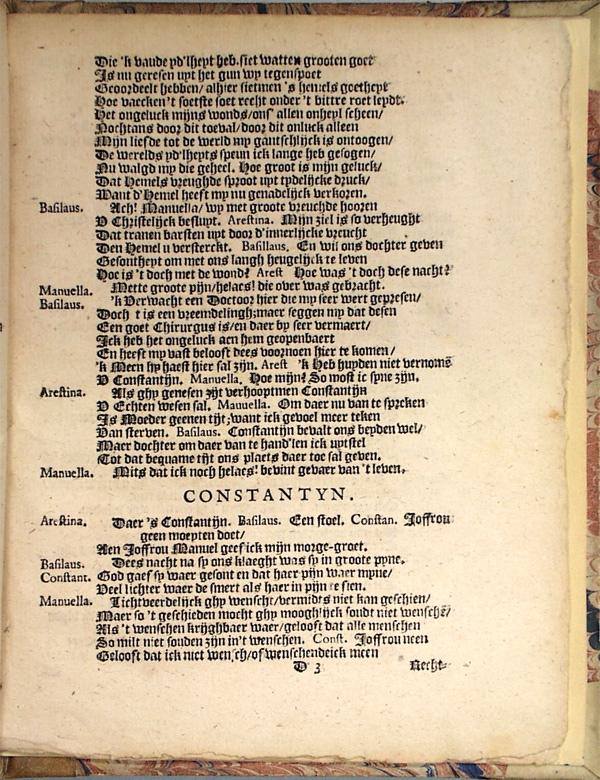 Die 'k vaude yd'lheyt heb. siet watten grooten goet
Is nu geresen uyt het gun wy tegenspoet
Geoordeelt hebben/ alhier sietmen 's hemels goetheyt
Hoe vaecken 't soetste soet recht onder 't bittre roet leydt.
Het ongeluck mijns wonds/ ons' allen onheyl scheen/
Nochtans door dit toeval/ door dit onluck alleen
Mijn liefde tot de werld my gantschlijck is ontoogen/
De werelds yd'lheyts speun ick lange heb gesogen/
Nu walgd my die geheel. Hoe groot is mijn geluck/
Dat Hemels vreughde sproot uyt tydelijcke druck/
Want d'Hemel heeft my nu genadelijck verkoren.
Basilaus. Ach! Manuella/ wy met groote vreuchde hooren
V Christelijck besluyt. Arestina. Mijn ziel is so verheught
Dat tranen barsten uyt door d'innerlijcke vreucht
Den Hemel u versterckt. Basillaus. En wil ons dochter geven
Gesontheyt om met ons langh heugelijck te leven
Hoe is 't doch met de wond? Arest Hoe was 't doch dese nacht?
Manuella. Mette groote pijn/ helacs! die over was gebracht.
Basilaus. 'k Verwacht een Doctoor hier die my seer wert gepresen/
Doch t is een vreemdelingh; maer seggen my dat desen
Een goet Chirurgus is/ en daer by seer vermaert/
Ick heb het ongeluck aen hem geopenbaert
En heeft my vast belooft dees voornoen hier te komen/
'k Meen hy haest hier sal zijn. Arest 'k Heb huyden niet vernomē
V Constantijn. Manuella. Hoe mijn? So most ic syne zijn.
Arestina. Als ghy genesen zijt verhooptmen Constantijn
V Echten wesen sal. Manuella. Om daer nu van te spreken
Is Moeder geenen tijt; want ick gevoel meer teken
Van sterven. Basilaus. Constantijn bevalt ons beyden wel/
Maer dochter om daer van te hand'len ick uytstel
Tot dat bequame tijt ons plaets daer toe sal geven.
Manuella. Mits dat ick noch helaes! bevint gevaer van 't leven.
CONSTANTYN.
Arestina. Daer 's Constantijn. Basilaus. Een stoel. Constan. Joffrou
geen moeyten doet/
Aen Joffrou Manuel geef ick mijn morge-groet.
Basilaus. Dees nacht na sy ons klaeght was sy in groote pyne.
Constant. God gaef sy waer gesont en dat haer pijn waer myne/
Veel lichter waer de smert als haer in pijn te sien.
Manuella. Lichtveerdelijck ghy wenscht/ vermids niet kan geschien/
Maer so 't geschieden mocht ghy moogh'lijck soudt niet wenschē/
Als 't wenschen krijghbaer waer/ gelooft dat alle menschen
So milt niet souden zijn in't wenschen. Const. Joffrou neen
Gelooft dat ick niet wensch/ of wenschende ick meen
D 3 Recht-